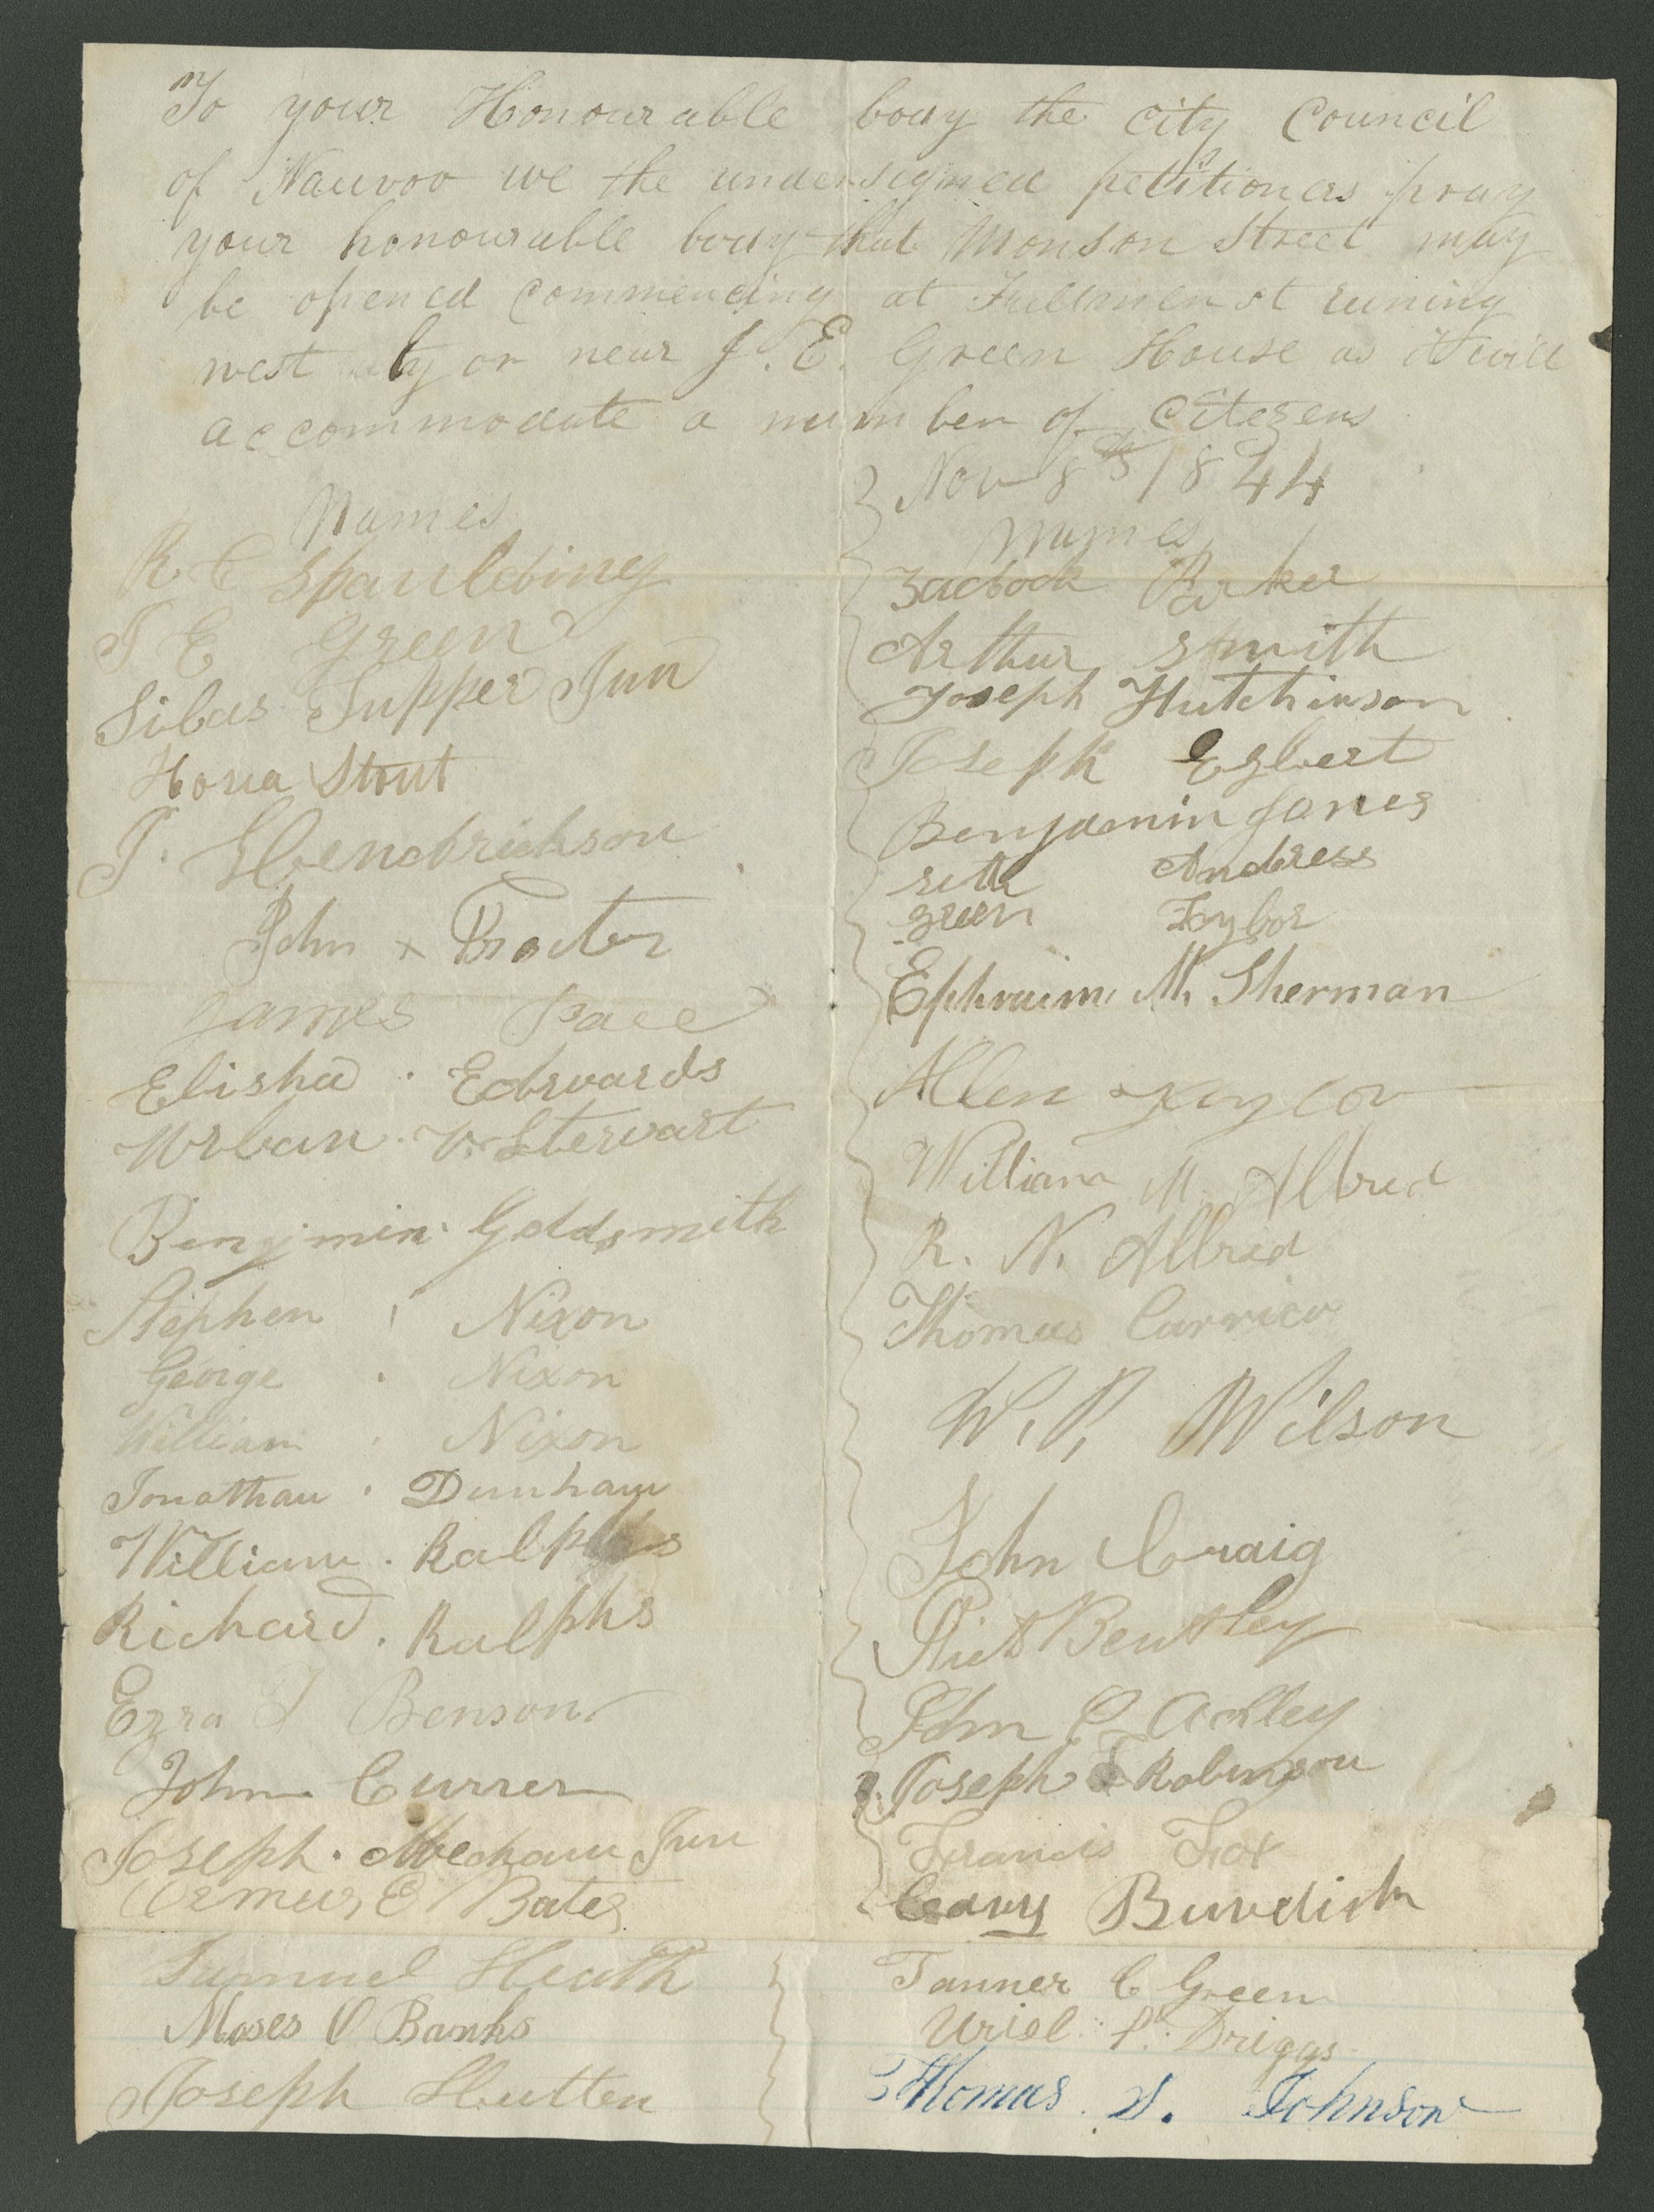 To your Honourable body the city Council
of Nauvoo we the undersigned petitioners pray
your honourable body that Monson Street may
be opened commencing at Fullmer st runing
west by or near J. E. Green House as it will
accommodate a number of Citezens
Nov 8th 1844
Names
R C Spaulding
J E Green
Silas Tupper Jun
Hosea Stout
J. Hendrickson
John x Procter
James Pace
Elisha Edwards
Urban V. Stewart
Benjmin Goldsmith
Stephen Nixon
George Nixon
William Nixon
Jonathan Dunham
William Ralphs
Richard Ralphs
Ezra T Benson
John Currer
Joseph Mecham Jun
Ormus E Bates
Samuel Heath
Moses O Banks
Joseph Hutten
Names
Zadock Parker
Arthur Smith
Joseph Hutchinson
Joseph Egbert
Benjamin Jones
Seth Andress
Green Taylor
Ephraim M. Sherman
Allen Taylor
William M Allred
R. N. Allred
Thomas Carrico
W. P. Wilson
John Craig
Bentley
John C Ackley
Joseph Robinson
Francis Fox
Burdick
Tanner C Green
Uriel P. Driggs
Thomas S. Johnson